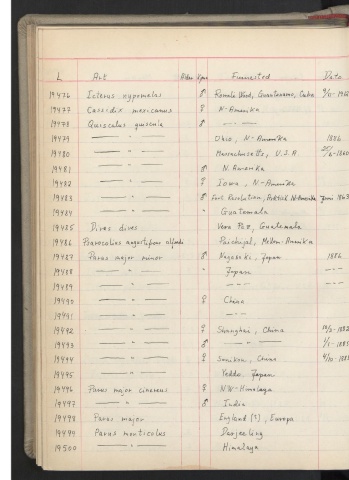 L Art Alder Kjøn Funnested Dato
19476 Icterus hypomelas ♂ Remate Wood, Guantanamo, Cuba
19477 Cassidix mexicanus ♀ N-Amerika
19478 Quiscalus quiscula ♂ — " —
19479 — " — Ohio, N-Amerika 1886
19480 — " — Massachusetts, U.S.A
19481 — " — ♂ N. Amerika
19482 — " — ♀ Iowa, N-Amerika
19483 — " — ♂ Fort Resolution, N-Amerika Juni 1863
19484 — " — " Guatemala
19485 Dives dives Vera Paz, Guatemala
19486 Mellem-Amerika
19487 Parus major minor ♂ Nagasaki, Japan 1886
19488 — " — " Japan — " —
19489 — " — — " — — " —
19490 — " — ♀ China
19491 — " — — " —
19492 — " — ♀ Shanghai, China
19493 — " — ♂ — " —
19494 — " — ♀ China
19495 — " — Yeddo, Japan
19496 Parus major cinereus ♀ N.W-Himalaya
19497 — " — ♂ India
19498 Parus major England (?), Europa
19499 Parus monticolus Darjeeling
19500 — " — Himalaya